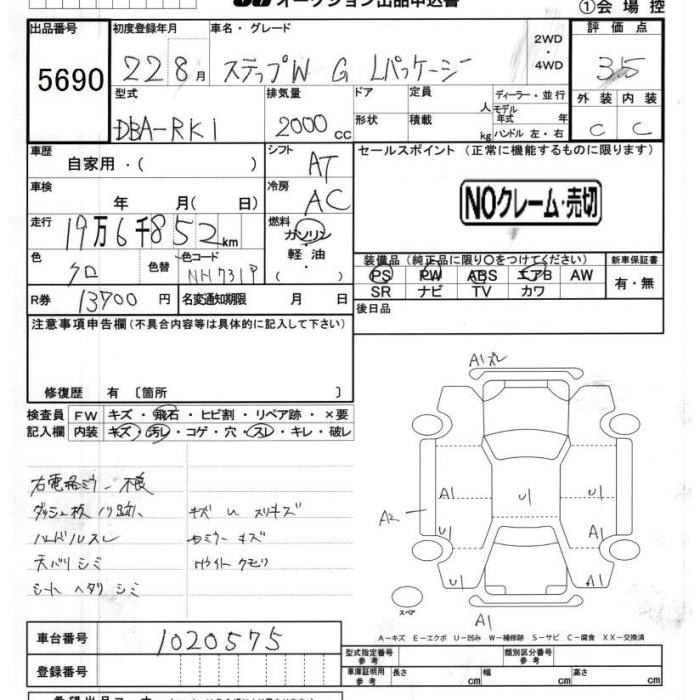 オークション出品申込書
①会場控
出品番号
5690
初度登録年月
22 8月
車名・グレード
ステップW G Lパッケージ
2WD
・
4WD
評価点
3.5
型式
DBA-RK1
排気量
2000 cc
ドア
形状
定員 人
積載 kg
ディーラー・並行
モデル年式 年
ハンドル 左・右
外装 内装
C C
車歴
自家用・( )
シフト
AT
セールスポイント (正常に機能するものに限ります)
NOクレーム・売切
車検
年 月( 日)
冷房
AC
走行
19万6千852km
燃料
ガソリン
・
軽油
( )
色
クロ
色替
色コード
NH731P
装備品 (純正品に限り○をつけてください)
PS PW ABS エアB AW
SR ナビ TV カワ
新車保証書
有・無
R券 13700円
名変通知期限 月 日
後日品
注意事項申告欄 (不具合内容等は具体的に記入して下さい)
修復歴 有 〔箇所 〕
検査員
記入欄
FW キズ・飛石・ヒビ割・リペア跡・×要
内装 キズ・汚レ・コゲ・穴・スレ・キレ・破レ
右電格ミラー不良
ダッシュ板ノリ跡
ハンドルスレ
天バリシミ
シートヘタリシミ
キズ U スリキズ
ミラーキズ
ライトクモリ
A1ズレ
A1
U1
U1
A2
U1
A1
U1
A1
A1
スペア
A-キズ E-エクボ U-凹み W-補修跡 S-サビ C-腐食 XX-交換済
車台番号 1020575
登録番号
型式指定番号
参考
類別区分番号
参考
車庫証明用
参考
長さ cm 幅 cm 高さ cm